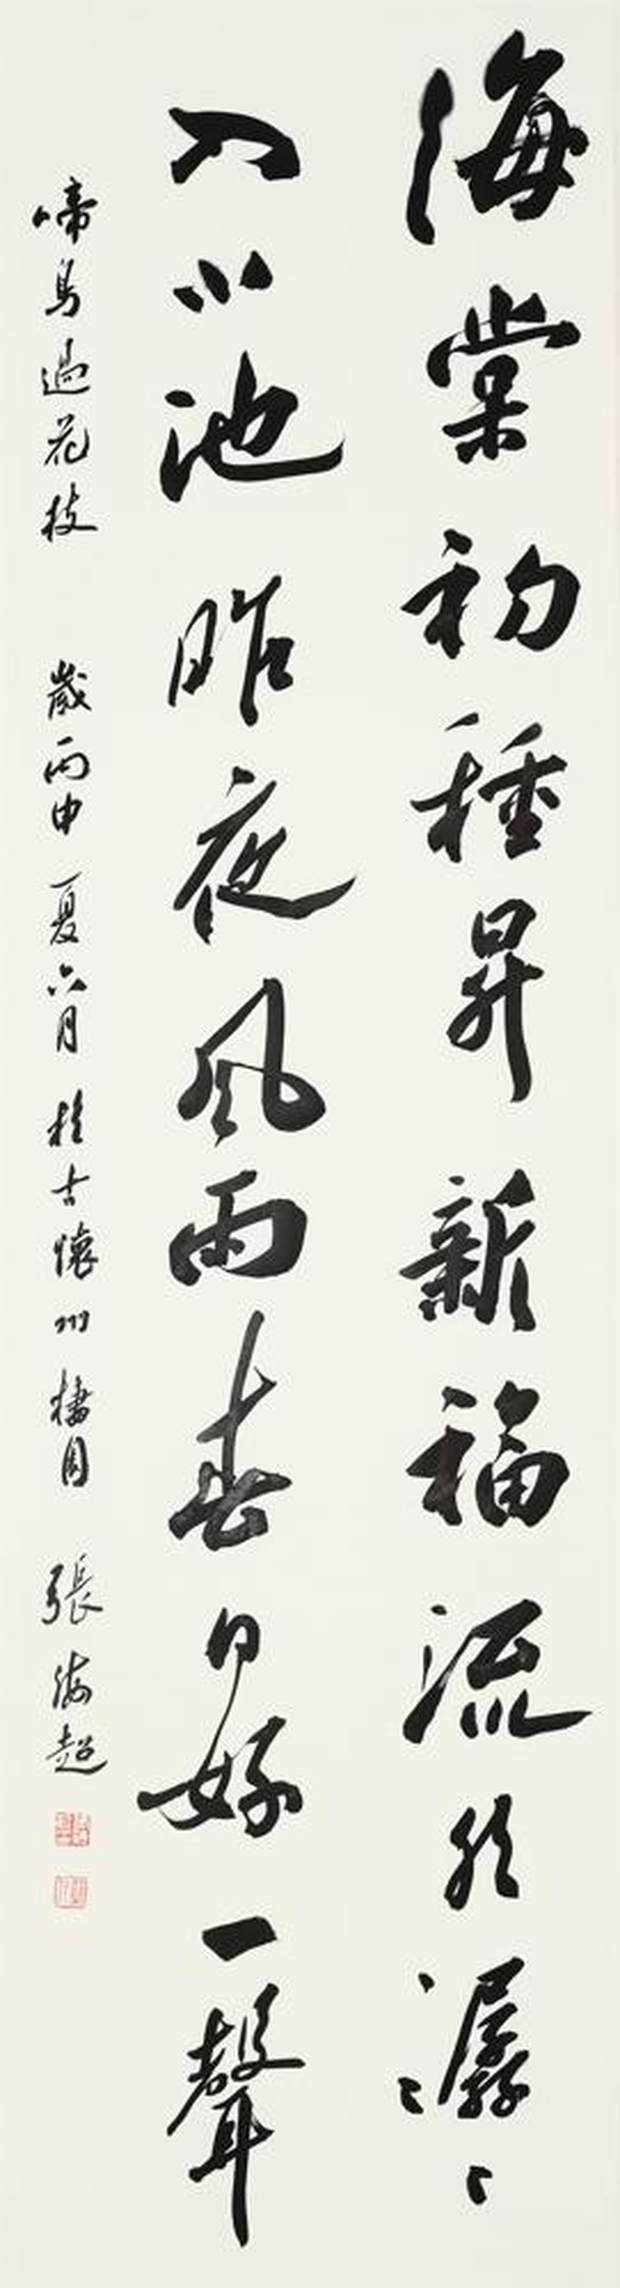 海棠初種昇新福流水潺〻
入小池昨夜風雨春日好一聲
啼鳥過花枝 歲丙申夏六月於古懷州棲園 張海超